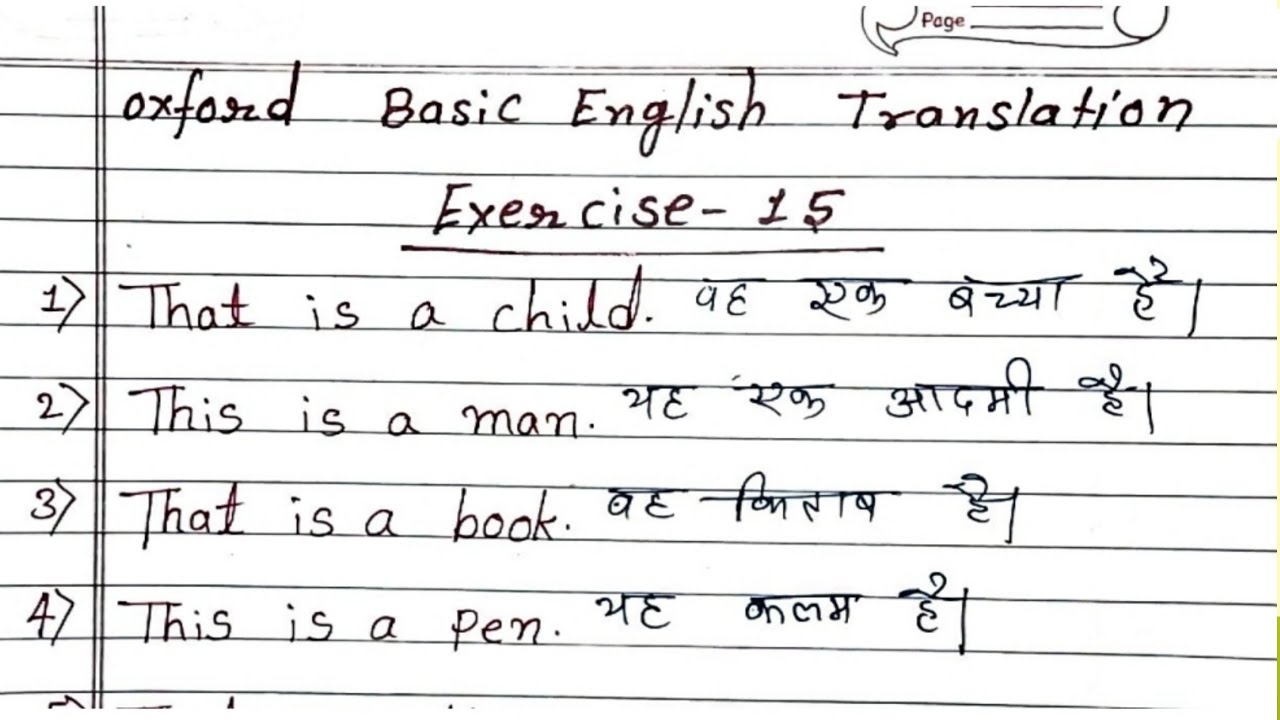 Page
oxford Basic English Translation
Exercise - 15
1) That is a child. वह एक बच्चा है।
2) This is a man. यह एक आदमी है।
3) That is a book. वह किताब है।
4) This is a pen. यह कलम है।